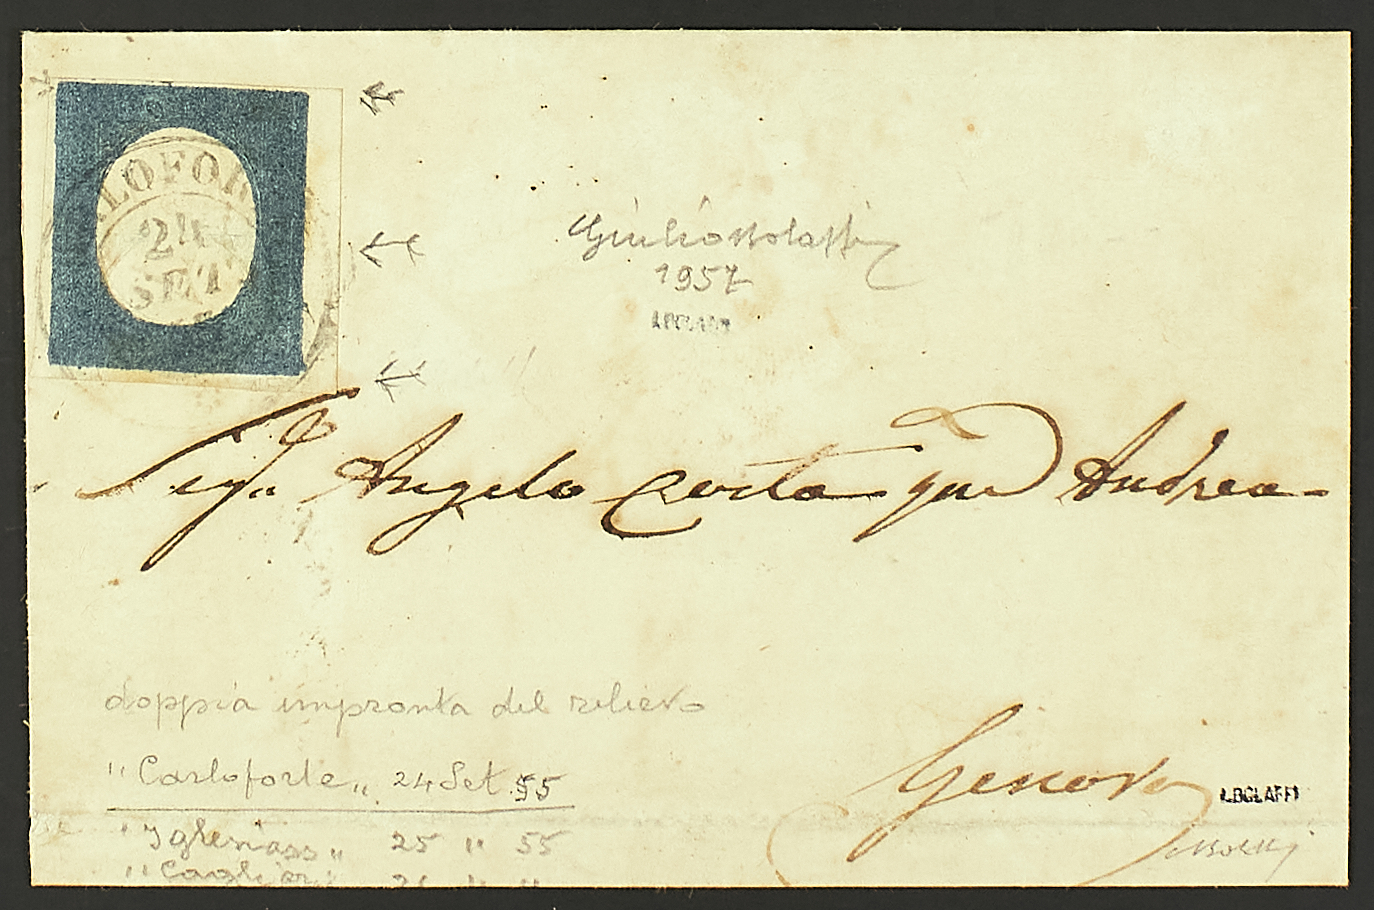 LOFOR
24
SET
Giulio Bolaffi
1957
A.BOLAFFI
Sig.r Angelo Costa qm Andrea
doppia impronta del rilievo
"Carloforte" 24 Set. 55
"Yglesias" 25 " 55
"Cagliari
Genova
A.BOLAFFI
ABolaffi